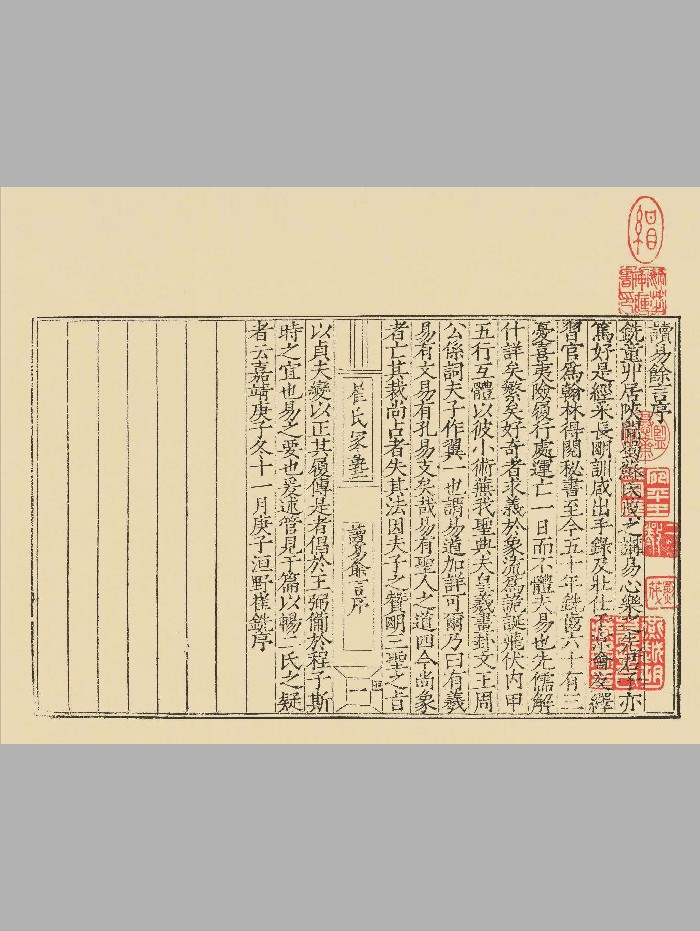 讀易餘言序
銑童丱居陝聞蜀蘇氏漢之講易心樂之先君子亦
篤好是經來長嗣訓咸出手錄及壯仕不忘龠爻繹
習官爲翰林得閱秘書至今五十年銑齒六十有三
憂喜夷險履行處運亡一日而不體夫易也先儒解
什詳矣繁矣好奇者求義於象流爲詭誕飛伏内甲
五行互體以彼小術蕪我聖典夫皇羲畫卦文王周
公係詞夫子作翼一也謂易道加詳可爾乃曰有羲
易有文易有孔易支矣哉易有聖人之道四今尚象
者亡其裁尚占者失其法因夫子之贊明三聖之旨
崔氏家塾
讀易餘言序
一
以貞夫變以正其履傳是者倡於王弼備於程子斯
時之宜也易之要也爰述管見于篇以暢二氏之疑
者云嘉靖庚子冬十一月庚子洹野崔銑序